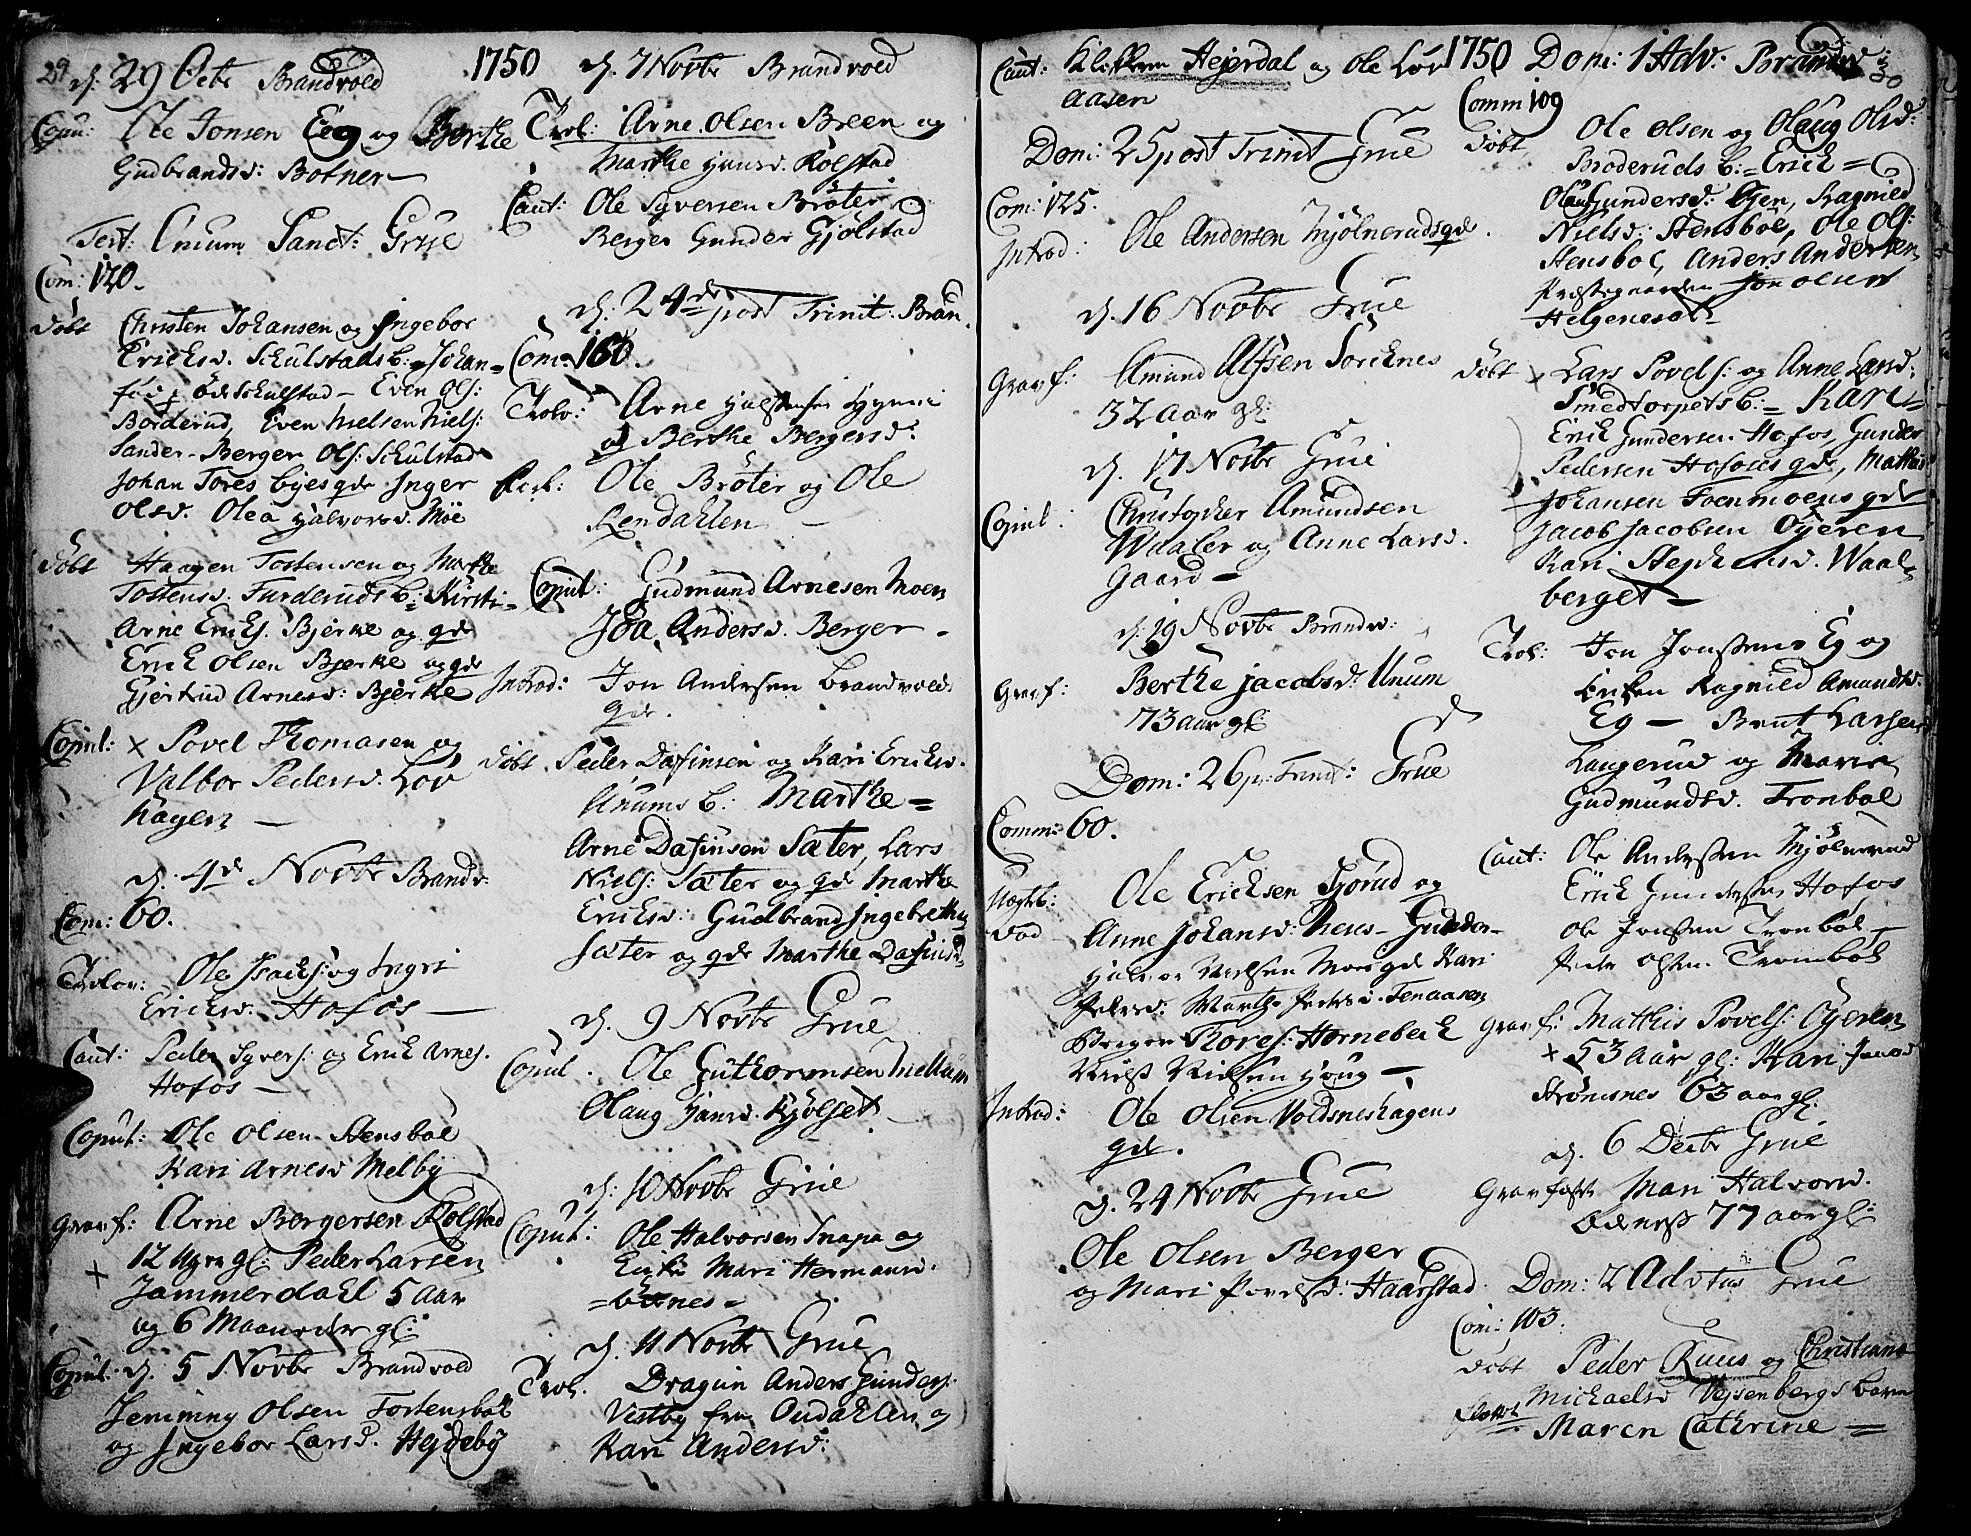 29
d. 29 Octr Brandvold
1750
Copu: Ole Jonsen Eeg og Berthe
Gudbrandsd: Botner
Fest: Omnium Sanct: Grue
Com: 120.
Döbt Christen Johansen og Ingebor
Ericksd. Schulstads b: Johan=
Even Ols:
Borderud, Even Nielsen Niels:
Sander - Berger Ols: Schulstad
Johan Tores Byes gde Inger
Olsd. Olea Halvorsd. Moe
Döbt Haagen Tostensen og Marthe
Tostensd. Furderuds b: Kirsti=
Arne Ericks. Bjerke og gde
Erick Olsen Bjerke og gde
Gjertrud Arnesd: Bjerke
Copul: x Povel Thomasen og
Valbor Pedersd. Lov
hagen
d. 4de Novbr Brandv:
Com: 60.
Trolov: Ole Isachs: og Ingri
Ericksd. Hofos
Caut: Peder Syvers: og Erick Arnes.
Hofos
Copul: Ole Olsen Stensböl
Kari Arnesd Melby
Gravf: Arne Bergersen Rolstad
12 Ugr gl: Peder Larsen
+ Jammerdahl 5 Aar
og 6 Maaneder gl:
Copul: d. 5 Novbr Brandvold
Jemming Olsen Tostensböl
og Ingebor Larsd. Hejdeby
d. 7 Novbr Brandvold
Trol: Arne Olsen Breen og
Marthe Hansd. Rolstad
Caut: Ole Syversen Bröter
Berger Gunder Gjölstad
d. 24de post Trinit. Bran.
Com: 160.
Trolv: Arne Halstensen
og Berthe Bergersd:
Ole Bröter og Ole
Rendahlen
Copul: Gudmund Arnesen Moen
Ida Andersd. Berger
Introd: Jon Andersen Brandvolds
gde.
Döbt Peder Dafinsen og Kari Ericksd.
Unums b: Marthe=
Arne Dafinsen Sæter, Lars
Niels: Sæter og gde Marthe
Ericksd: Gudbrand Ingebreths:
Sæter og gde Marthe Dafinsd.
d. 9 Novbr Grue
Copul. Ole Guthormsen Mellum
Olaug Hansd. Kjölset
d. 10 Novbr Grue
Copul: Ole Halvorsen Snapa og
Enke Mari Hermansd.
d. 11 Novbr Grue
Trol. Dragun Anders Gunders.
Vestby fra Oudahlen og
Kari Andersd:
Caut: Klokken Hejerdal og Ole Lov
aasen
1750
Dom: 25 post Trinit Grue
Com: 125.
Introd: Ole Andersen Mjölneruds gde.
d. 16 Novbr Grue
Gravf: Amund Alfsen Sorcknes
32 Aar gl:
d. 17 Novbr Grue
Copul: Christopher Amundsen
Waaler og Anne Larsd.
Gaard
d. 19 Novbr Brandv:
Gravf: Berthe Jacobsd. Unum
73 aar gl:
Dom: 26 p: Trinit: Grue
Comm: 60.
Ole Ericksen Sjorud og
Anne Johansd: Neses - Gunder-
Nielsen Moes gde Kari
Pedersd: Marthe Pedersd. Tenaasen
Berger Thores: Horneback
Niels Nielsen Houg
Introd: Ole Olsen Voldsneshagens
gde.
d. 24 Novbr Grue
Ole Olsen Berger
og Mari Povelsd: Haarstad
Dom: 1 Adv: Brandv:
30
Comm 109
Döbt Ole Olsen og Olaug Olsd:
Broderuds b: Erich=
Olaug Gundersd. Ejen, Ragnild
Nielsd: Stensböl, Ole Ols:
Stensböl, Anders Andersen
Præstegaarden Jon Olsen
Helgenesæt
Döbt x Lars Povels: og Anne Larsd.
Smedtorpets b: Kari=
Erick Gundersen Hofos, Gunder
Pedersen Hofoses gde, Mathis
Johansen Foenmoens gde
Jacob Jacobsen Öyeren
Kari Stephensd. Waal
berget
Trol: Jon Jonsen Eg og
Enken Ragnild Amundsd.
Eg - Bernt Larsen
Laugerud og Mari
Gudmundsd. Tronböl
Caut: Ole Andersen Mjölnerud
Erick Gundersen Hofos
Ole Jonsen Tronböl
Peder Olsen Tronböl
Gravf: Mathis Povels: Öyeren
+ 53 Aar gl: Kari
Strönsnes 63 aar gl:
d. 6 Decbr Grue
Gravfest Mari Halvorsd.
77 aar gl:
Dom: 2 Advtus Grue
Com: 103.
Döbt Peder Ruus og Christiana
Michaelsd Vejsenbergs barn
Maren Cathrine=